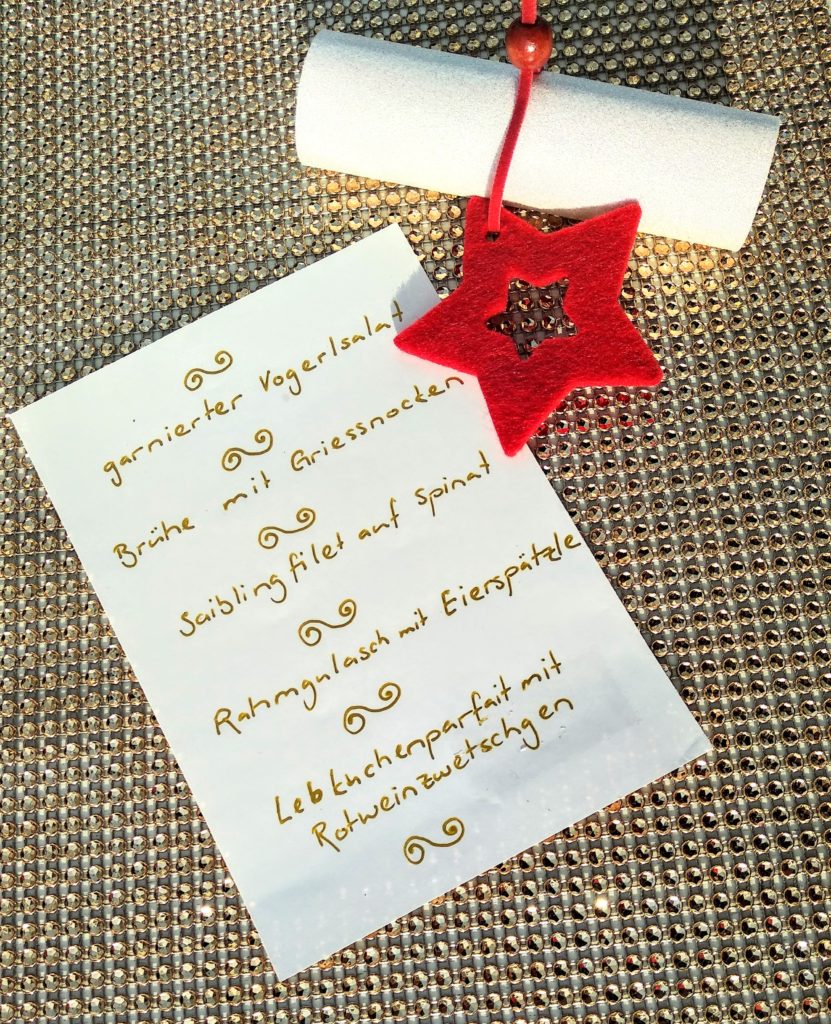 garnierter Vogerlsalat
Brühe mit Griessnocken
Saiblingfilet auf Spinat
Rahmgulasch mit Eierspätzle
Lebkuchenparfait mit
Rotweinzwetschgen